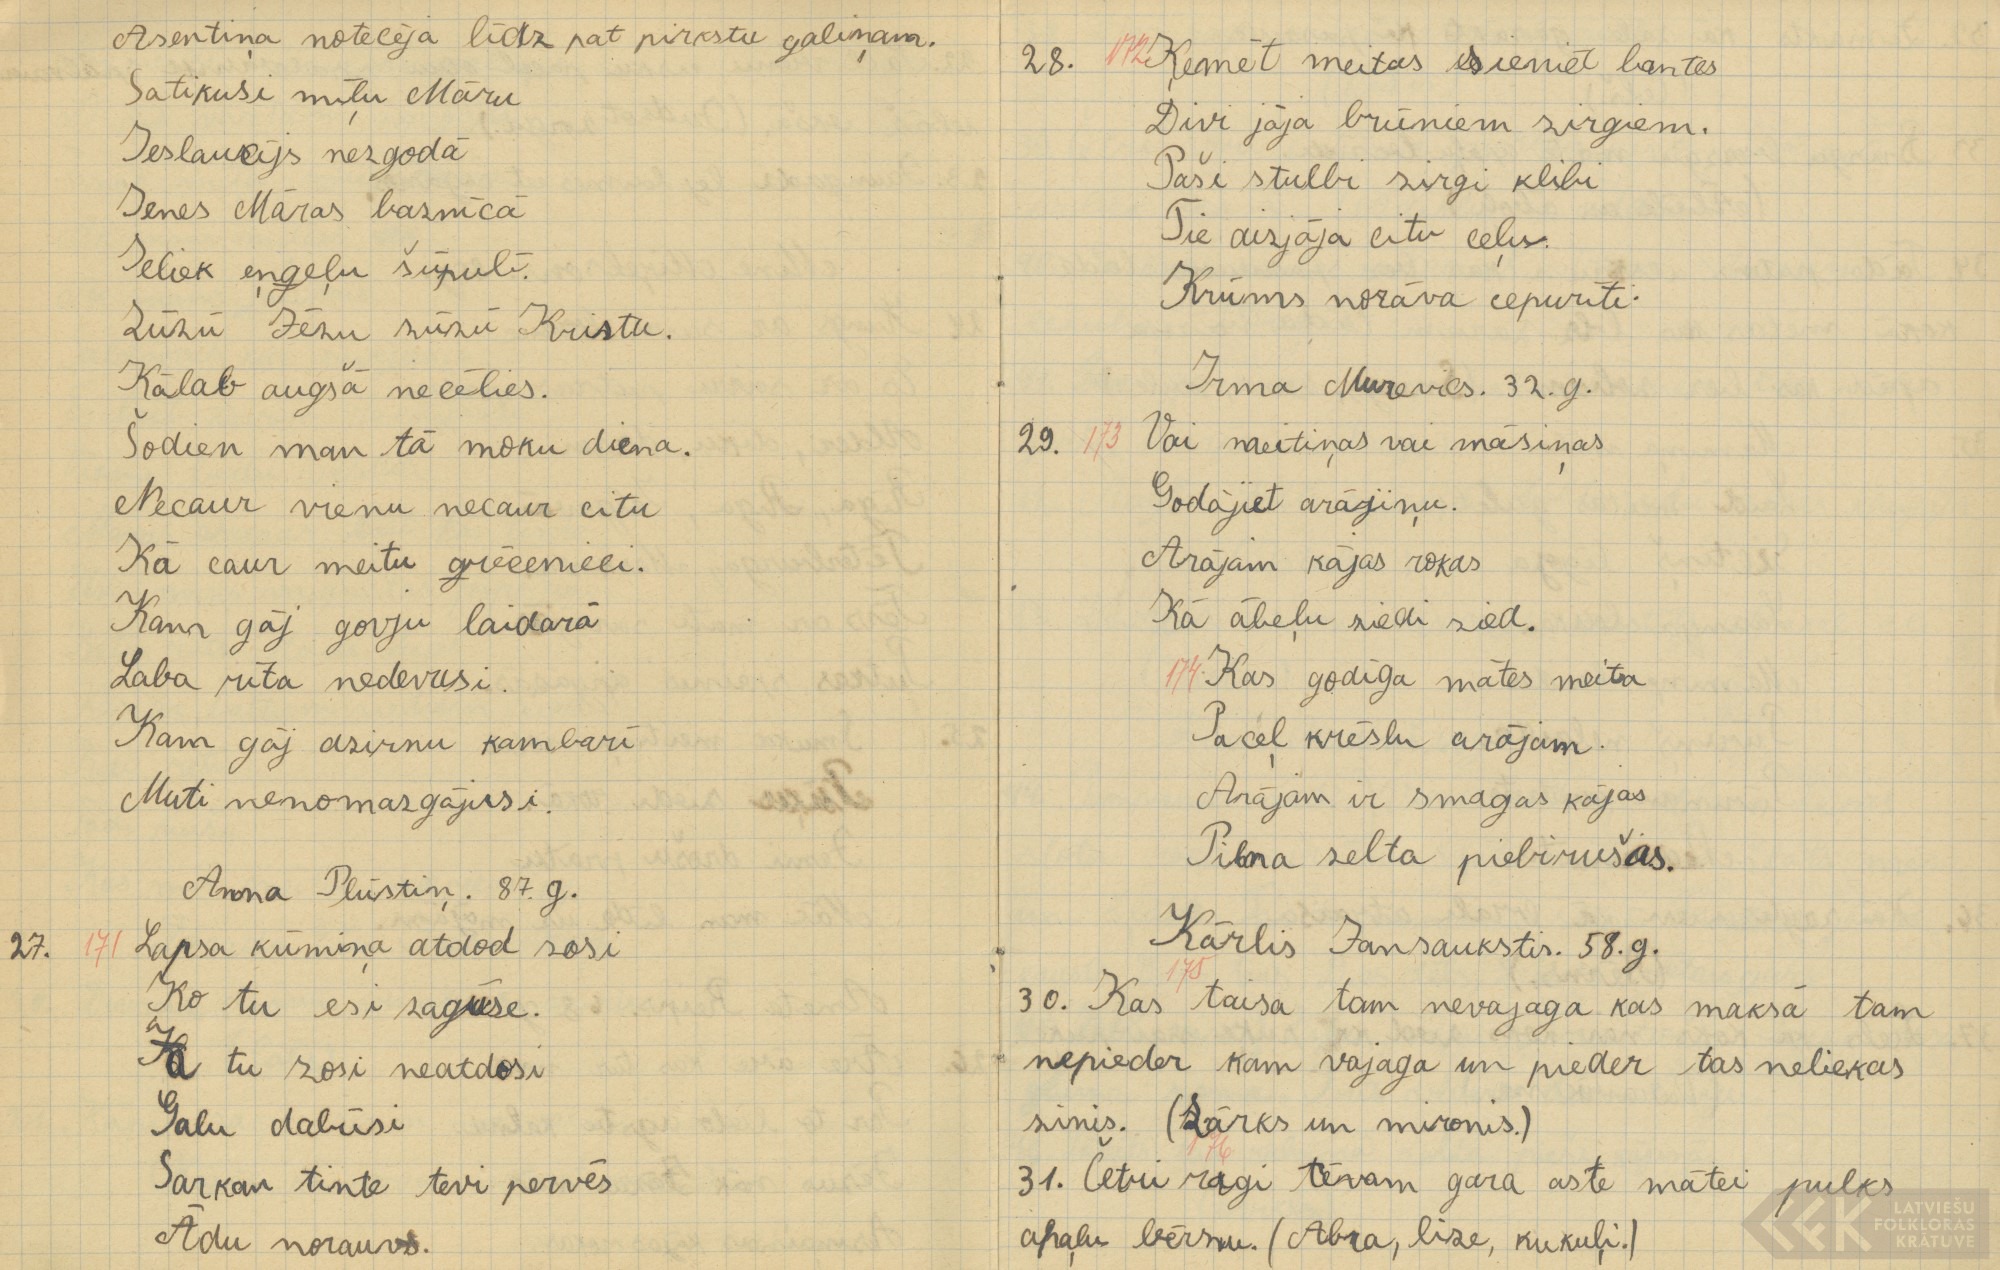 Asentiņa notecēja līdz pat pirkstu galiņam.
Satikuši mīļu Māru
Ieslaucījs nezgodā
Ienes Māras baznīcā
Ieliek eņģeļu šūpulī.
Zūzū Jēzu zūzū Kristu.
Kālab augšā necēlies.
Šodien man tā moku diena.
Necaur vienu necaur citu
Kā caur meitu grēcenieci.
Kam gāj govju laidarā
Laba rīta nedevusi.
Kam gāj dzirnu kambarī
Muti nenomazgājusi.
Anna Plūstiņ. 87. g.
27. 171 Lapsa kūmiņa atdod zosi
Ko tu esi zaguse.
Ja tu zosi neatdosi
Galu dabūsi
Sarkan tinte tevi pervēs
Ādu noraus.
28. 172. Ķemēt meitas sieniet bantes
Divi jāja brūniem zirgiem.
Paši stulbi zirgi klibi
Tie aizjāja citu ceļu.
Krūms norāva cepurīti.
Irma Murevics. 32. g.
29. 173 Vai meitiņas vai māsiņas
Godājiet arājiņu.
Arājam kājas rokas
Kā ābeļu ziedi zied.
174. Kas godīga mātes meita
Paceļ krēslu arājam.
Arājam ir smagas kājas
Pilna zelta piebirušas.
Kārlis Jansaukstis. 58. g.
175
30. Kas taisa tam nevajaga kas maksā tam
nepieder kam vajaga un pieder tas neliekas
zinis. (Zārks un mironis.)
176
31. Četri ragi tēvam gara aste mātei pulks
apaļu bērnu. (Abra, lize, kukuļi.)
LATVIEŠU
FOLKLORAS
KRĀTUVE